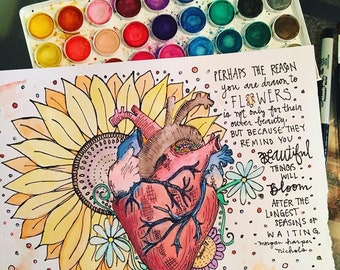 PERHAPS THE REASON
you are drawn to
FLOWERS
is not only for their
outer beauty
BUT BECAUSE THEY
REMIND YOU
BEAUTIFUL
THINGS
WILL
Bloom
AFTER THE
LONGEST
SEASONS OF
WAITING
morgan harper
nichols